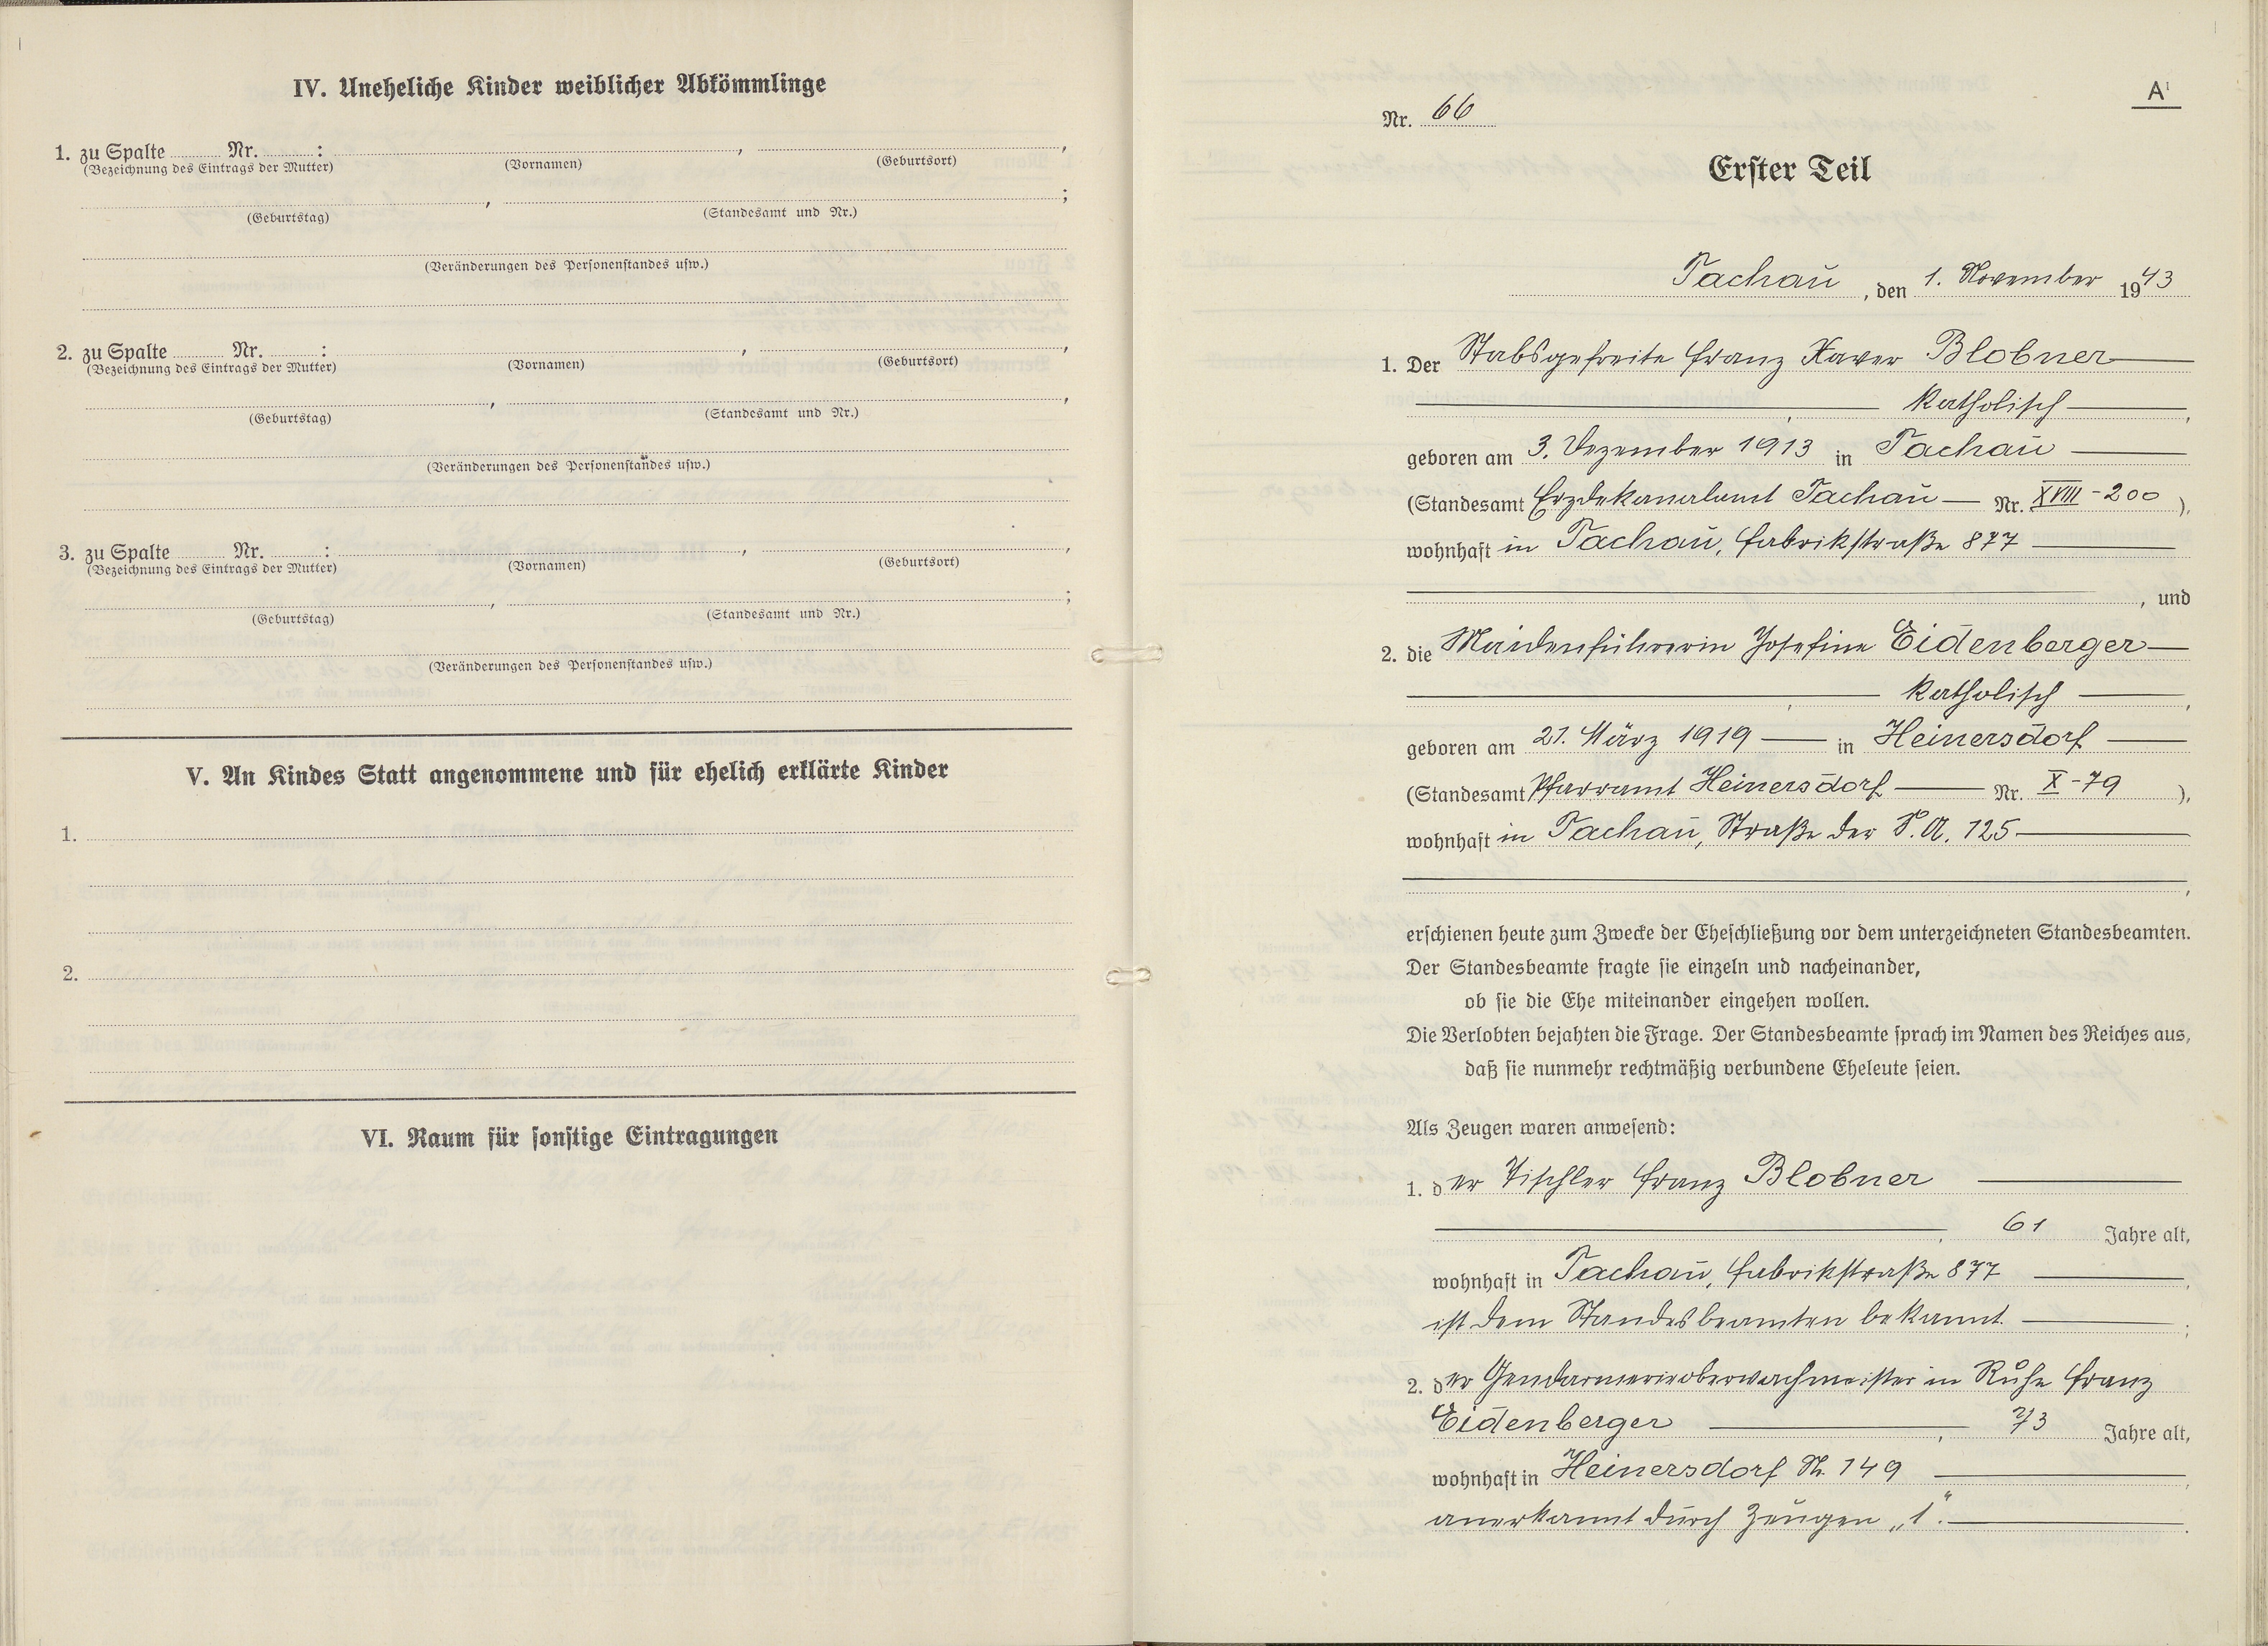 IV. Uneheliche Kinder weiblicher Abkömmlinge
1. zu Spalte ........ Nr. ........ : ........, ........,
(Bezeichnung des Eintrags der Mutter) (Vornamen) (Geburtsort)
........, ........;
(Geburtstag) (Standesamt und Nr.)
(Veränderungen des Personenstandes usw.)
2. zu Spalte ........ Nr. ........ : ........, ........,
(Bezeichnung des Eintrags der Mutter) (Vornamen) (Geburtsort)
........, ........,
(Geburtstag) (Standesamt und Nr.)
(Veränderungen des Personenstandes usw.)
3. zu Spalte ........ Nr. ........ : ........, ........,
(Bezeichnung des Eintrags der Mutter) (Vornamen) (Geburtsort)
........, ........;
(Geburtstag) (Standesamt und Nr.)
(Veränderungen des Personenstandes usw.)
V. An Kindes Statt angenommene und für ehelich erklärte Kinder
1.
2.
VI. Raum für sonstige Eintragungen
A¹
Nr. 66
Erster Teil
Tachau, den 1. November 1943
1. Der Stabsgefreite Franz Xaver Blobner
, katholisch,
geboren am 3. Dezember 1913 in Tachau
(Standesamt Erzdekanalamt Tachau Nr. XVIII-200),
wohnhaft in Tachau, Fabrikstraße 877
, und
2. die Maidenführerin Josefine Eidenberger
, katholisch,
geboren am 21. März 1919 in Heinersdorf
(Standesamt Pfarramt Heinersdorf Nr. X-79),
wohnhaft in Tachau, Straße der S.A. 125
,
erschienen heute zum Zwecke der Eheschließung vor dem unterzeichneten Standesbeamten.
Der Standesbeamte fragte sie einzeln und nacheinander,
ob sie die Ehe miteinander eingehen wollen.
Die Verlobten bejahten die Frage. Der Standesbeamte sprach im Namen des Reiches aus,
daß sie nunmehr rechtmäßig verbundene Eheleute seien.
Als Zeugen waren anwesend:
1. der Tischler Franz Blobner
, 61 Jahre alt,
wohnhaft in Tachau, Fabrikstraße 877,
ist dem Standesbeamten bekannt.;
2. der Gendarmerieoberwachmeister in Ruhe Franz
Eidenberger, 73 Jahre alt,
wohnhaft in Heinersdorf Nr. 149,
anerkannt durch Zeugen „1".